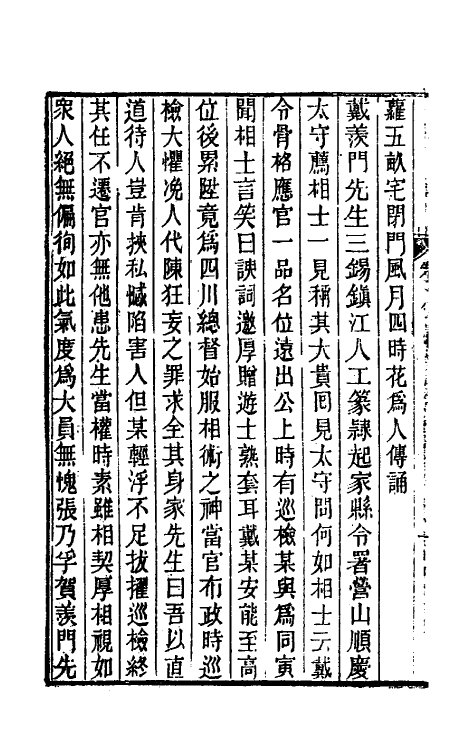 蘿五畝宅閉門風月四時花爲人傳誦
戴羨門先生三錫鎮江人工篆隸起家縣令署營山順慶
太守薦相士一見稱其大貴囘見太守問何如相士云戴
令骨格應官一品名位遠出公上時有巡檢某與爲同寅
聞相士言笑曰諛詞邀厚贈遊士熟套耳戴某安能至高
位後累陞竟爲四川總督始服相術之神當官布政時巡
檢大懼浼人代陳狂妄之罪求全其身家先生曰吾以直
道待人豈肯挾私憾陷害人但某輕浮不足拔擢巡檢終
其任不遷官亦無他患先生當權時素雖相契厚相視如
衆人絕無偏徇如此氣度爲大員無愧張乃孚賀羨門先